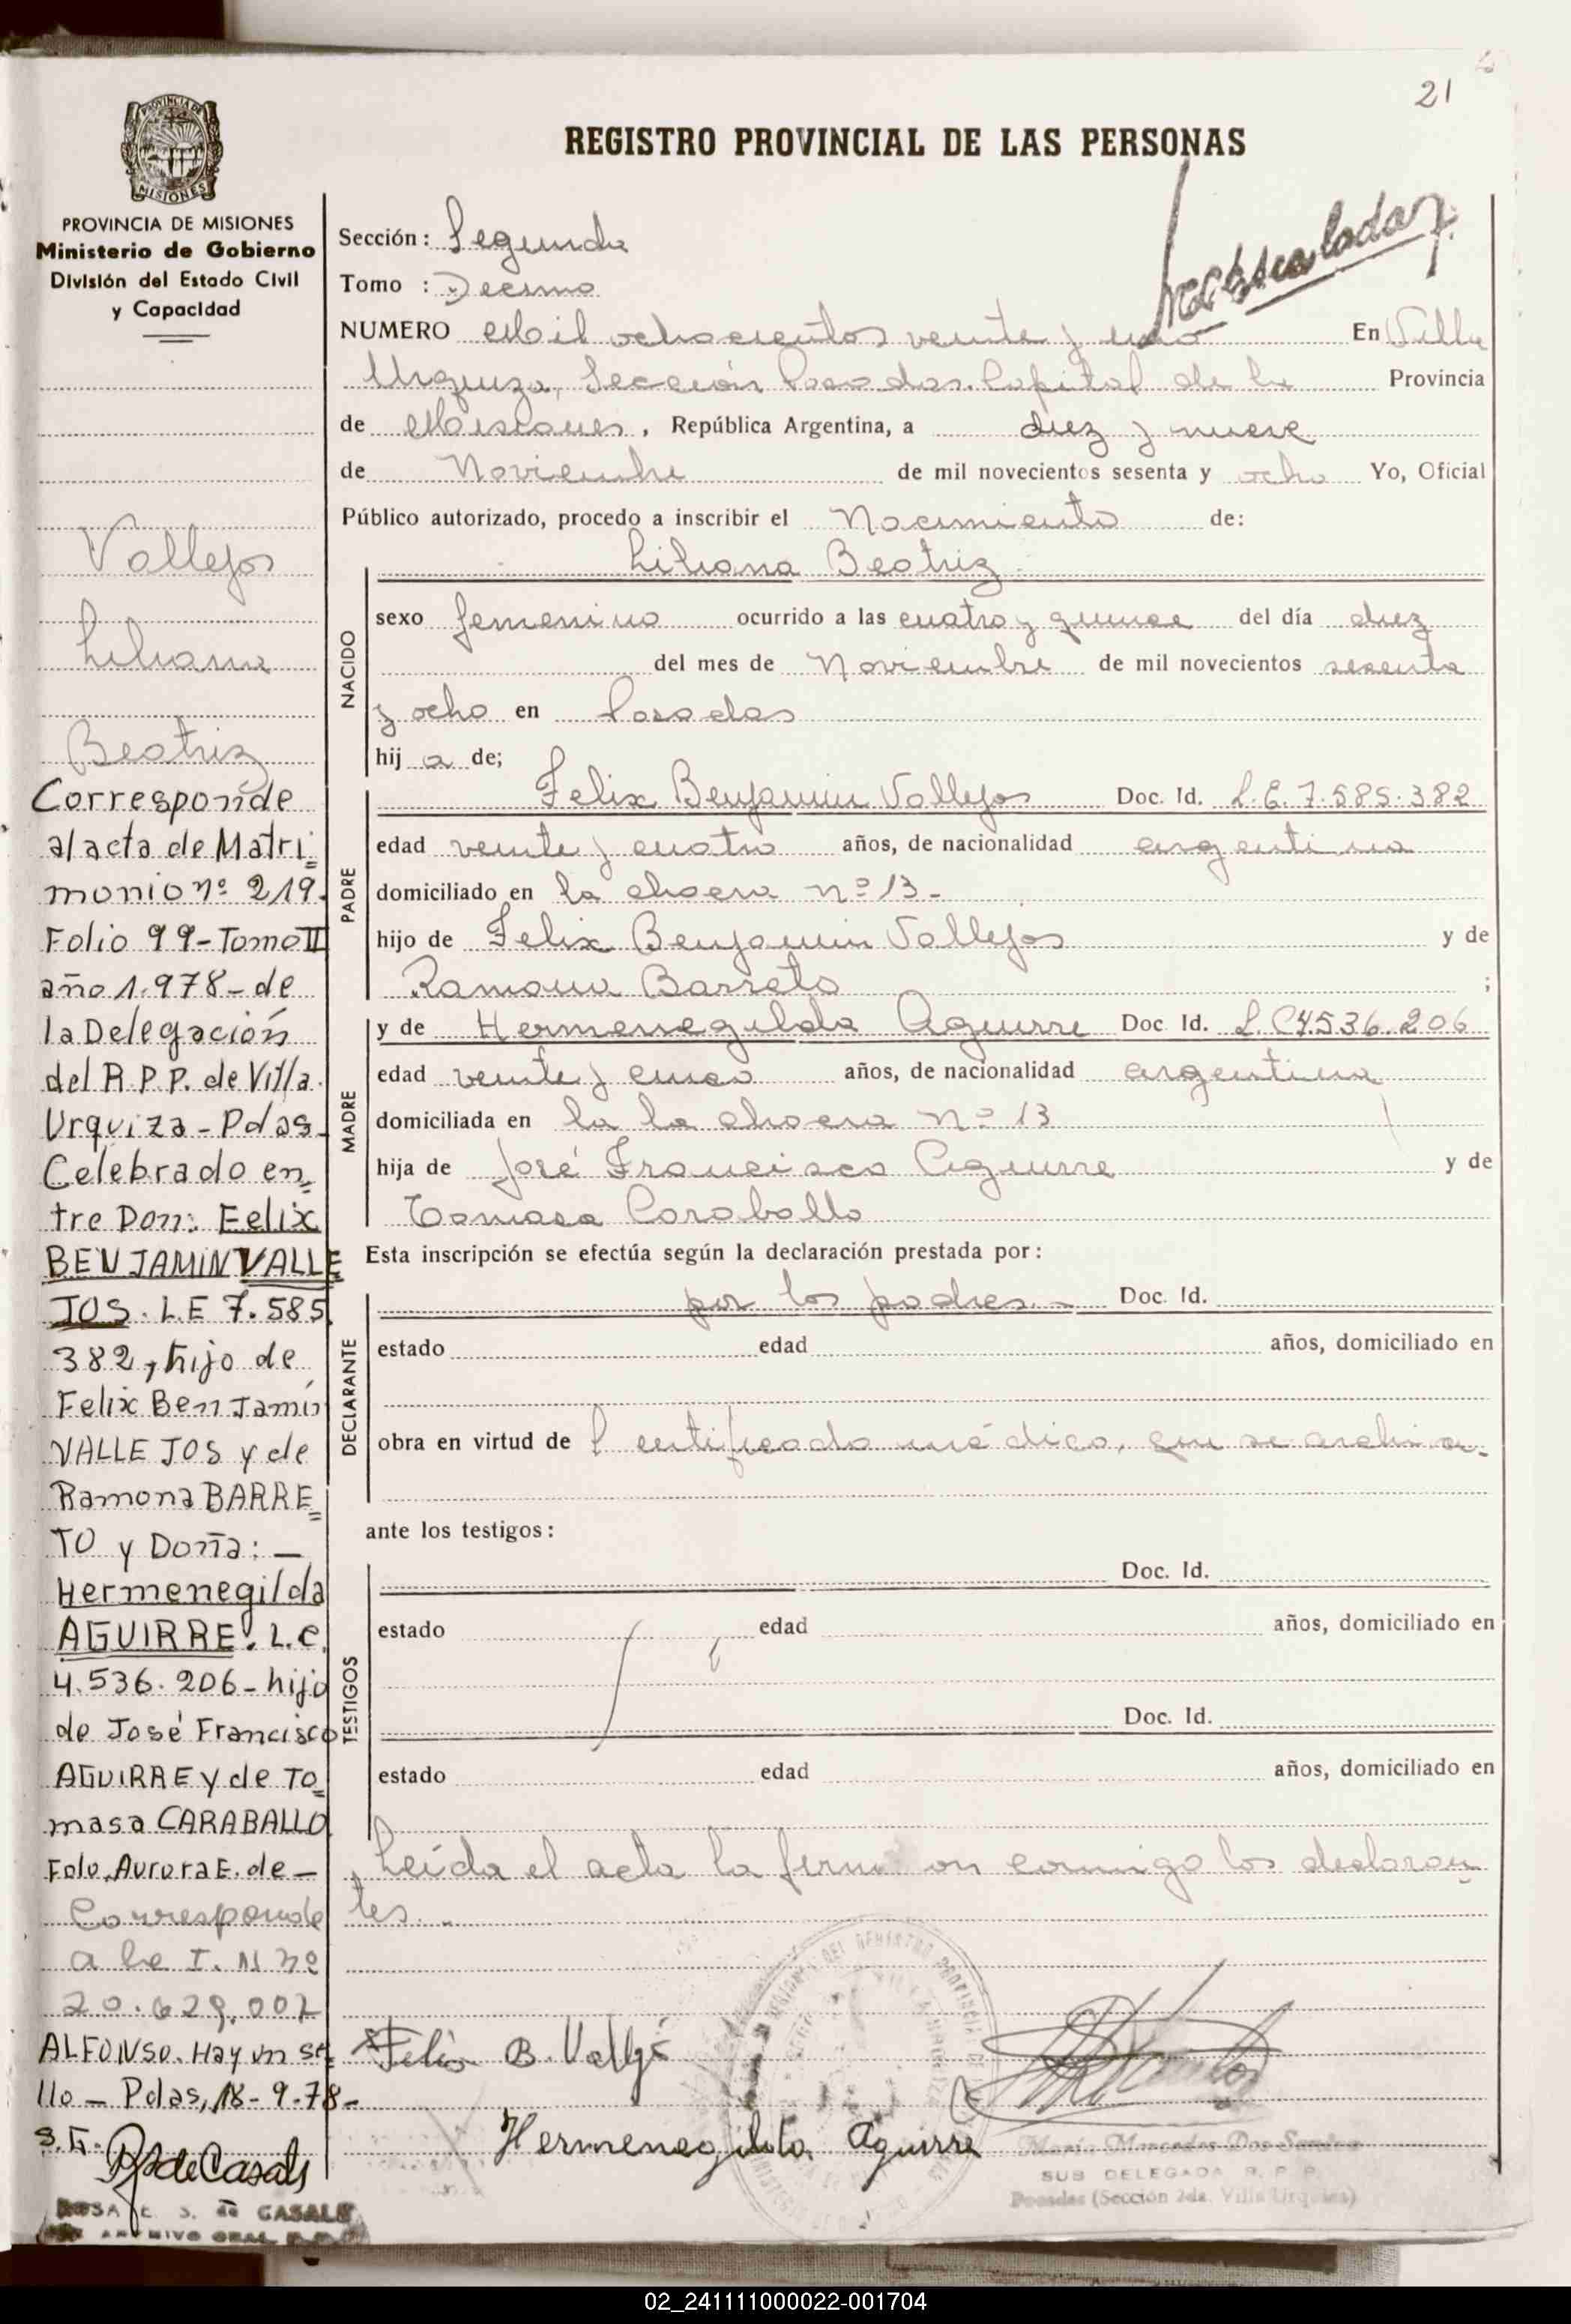 21
REGISTRO PROVINCIAL DE LAS PERSONAS
PROVINCIA DE
MISIONES
PROVINCIA DE MISIONES
Ministerio de Gobierno
División del Estado Civil
y Capacidad
Vallejos
Liliana
Beatriz
Corresponde
al acta de Matri=
monio nº 219.
Folio 99-Tomo II
año 1.978-de
la Delegación
del R.P.P. de Villa
Urquiza-Pdas.
Celebrado en=
tre Don: Felix
BENJAMIN VALLE
JOS. L.E 7.585.
382, hijo de
Felix Benjamin
VALLEJOS y de
Ramona BARRE=
TO y Doña: —
Hermenegilda
AGUIRRE. L.C.
4.536.206-hija
de José Francisco
AGUIRRE y de To=
masa CARABALLO
Fdo. Aurora E. de —
Corresponde
a la I. N nº
20.629.002
ALFONSO. Hay un se=
llo — Pdas, 18-9-78-
de Casals
ROSA E. S. de CASALS
ARCHIVO GRAL. R.P.P.
Sección: Segunda
Tomo : Decimo
NUMERO Mil ochocientos veinte y uno En Villa
Urquiza, Sección Posadas. Capital de la Provincia
de Misiones, República Argentina, a diez y nueve
de Noviembre de mil novecientos sesenta y ocho Yo, Oficial
Público autorizado, procedo a inscribir el Nacimiento de:
NACIDO
Liliana Beatriz
sexo femenino ocurrido a las cuatro y quince del día diez
del mes de Noviembre de mil novecientos sesenta
y ocho en Posadas
hij a de;
PADRE
Felix Benjamin Vallejos Doc. Id. L.E.7.585.382
edad veinte y cuatro años, de nacionalidad argentina
domiciliado en la chacra nº 13-
hijo de Felix Benjamin Vallejos y de
Ramona Barreto ;
MADRE
y de Hermenegilda Aguirre Doc Id. L.C4.536.206
edad veinte y cinco años, de nacionalidad argentina
domiciliada en la la chacra nº 13
hija de José Francisco Aguirre y de
Tomasa Caraballo
Esta inscripción se efectúa según la declaración prestada por:
DECLARANTE
por los padres.- Doc. Id.
estado edad años, domiciliado en
obra en virtud de l certificado médico, que se archiva.
ante los testigos:
TESTIGOS
Doc. Id.
estado edad años, domiciliado en
Doc. Id.
estado edad años, domiciliado en
Leída el acta la firman conmigo los declaran
tes.
Felix B. Vallejos
Hermenegilda Aguirre
María Mercedes Dos Santos
SUB DELEGADA R. P. P.
Posadas (Sección 2da. Villa Urquiza)
02_241111000022-001704